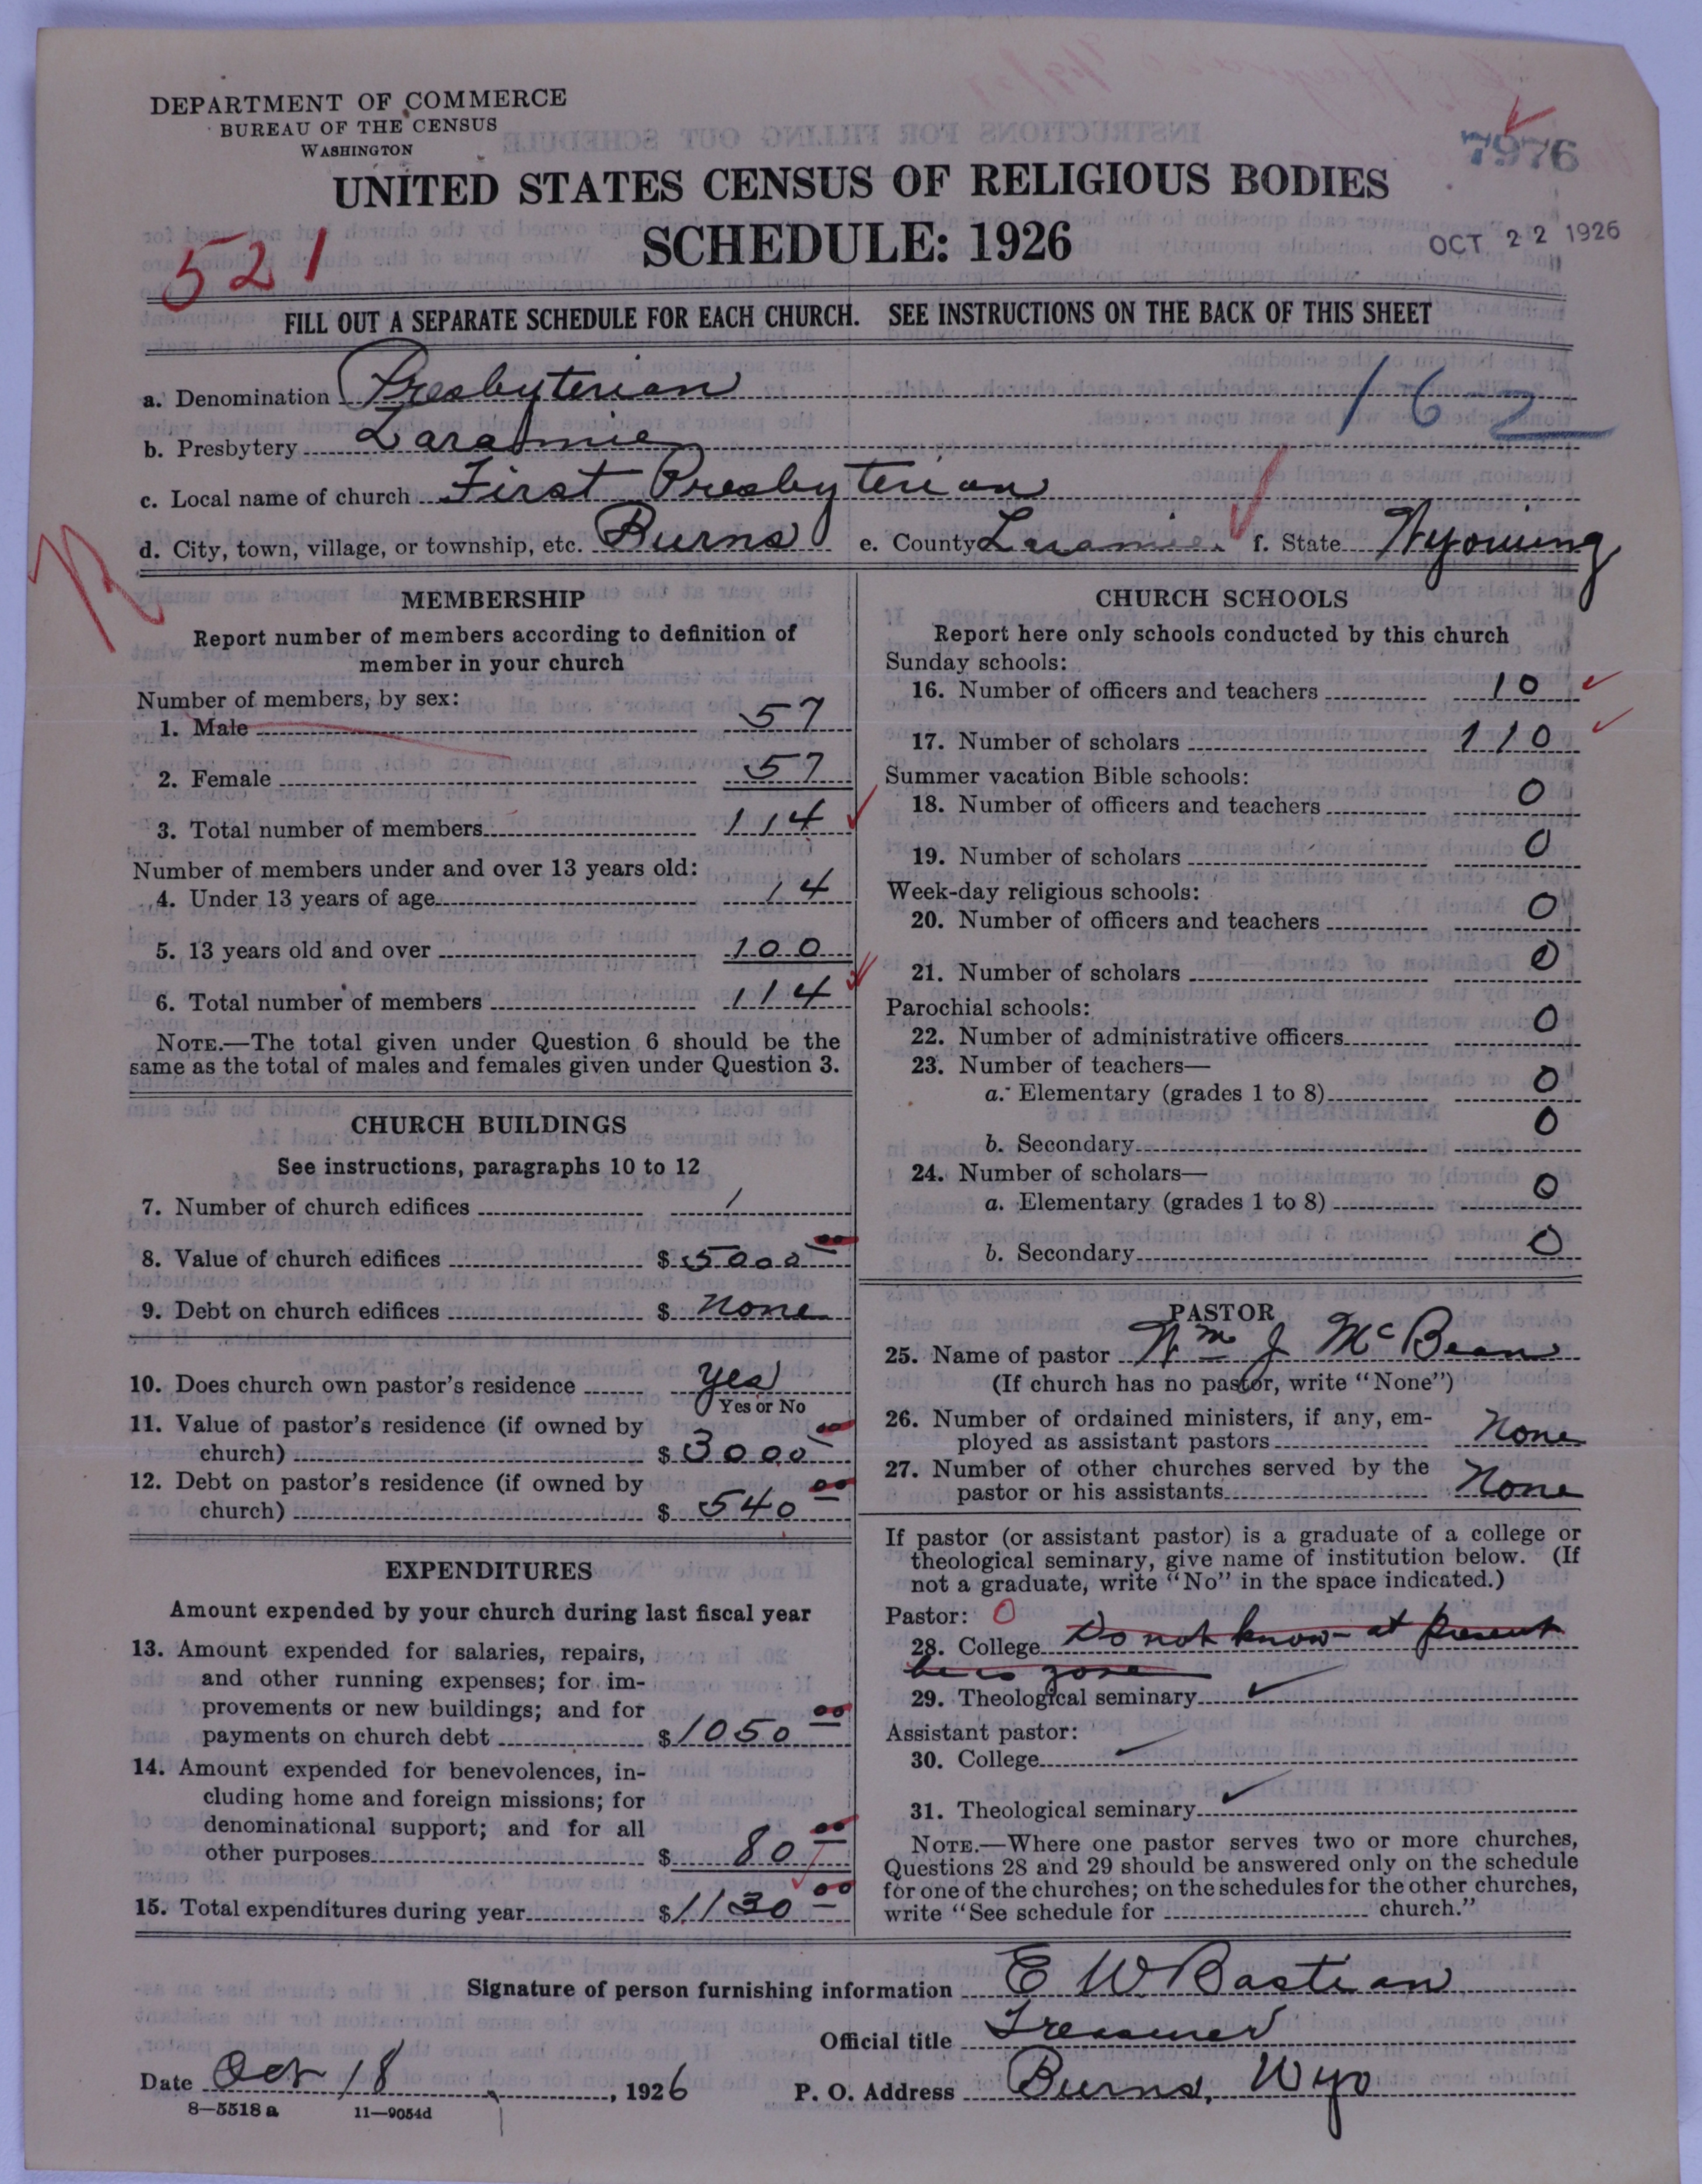 DEPARTMENT OF COMMERCE
BUREAU OF THE CENSUS
WASHINGTON
7976
UNITED STATES CENSUS OF RELIGIOUS BODIES
SCHEDULE: 1926
OCT 22 1926
521
FILL OUT A SEPARATE SCHEDULE FOR EACH CHURCH. SEE INSTRUCTIONS ON THE BACK OF THIS SHEET
a. Denomination Presbyterian
162
b. Presbytery Laramie
c. Local name of church First Presbyterian
d. City, town, village, or township, etc. Burns e. County Laramie f. State Wyoming
MEMBERSHIP
Report number of members according to definition of
member in your church
Number of members, by sex:
1. Male 57
2. Female 57
3. Total number of members 114
Number of members under and over 13 years old:
4. Under 13 years of age 14
5. 13 years old and over 100
6. Total number of members 114
NOTE.—The total given under Question 6 should be the
same as the total of males and females given under Question 3.
CHURCH BUILDINGS
See instructions, paragraphs 10 to 12
7. Number of church edifices 1
8. Value of church edifices $ 5000 00
9. Debt on church edifices $ None
10. Does church own pastor's residence Yes
Yes or No
11. Value of pastor's residence (if owned by
church) $ 3000 00
12. Debt on pastor's residence (if owned by
church) $ 540 00
EXPENDITURES
Amount expended by your church during last fiscal year
13. Amount expended for salaries, repairs,
and other running expenses; for im-
provements or new buildings; and for
payments on church debt $ 1050 00
14. Amount expended for benevolences, in-
cluding home and foreign missions; for
denominational support; and for all
other purposes $ 80 00
15. Total expenditures during year $ 1130 00
CHURCH SCHOOLS
Report here only schools conducted by this church
Sunday schools:
16. Number of officers and teachers 10
17. Number of scholars 110
Summer vacation Bible schools:
18. Number of officers and teachers 0
19. Number of scholars 0
Week-day religious schools:
20. Number of officers and teachers 0
21. Number of scholars 0
Parochial schools:
22. Number of administrative officers 0
23. Number of teachers—
a. Elementary (grades 1 to 8) 0
b. Secondary 0
24. Number of scholars—
a. Elementary (grades 1 to 8) 0
b. Secondary 0
PASTOR
25. Name of pastor Wm J McBean
(If church has no pastor, write "None")
26. Number of ordained ministers, if any, em-
ployed as assistant pastors None
27. Number of other churches served by the
pastor or his assistants None
If pastor (or assistant pastor) is a graduate of a college or
theological seminary, give name of institution below. (If
not a graduate, write "No" in the space indicated.)
Pastor: 0
28. College Do not know at present
he is gone
29. Theological seminary
Assistant pastor:
30. College
31. Theological seminary
NOTE.—Where one pastor serves two or more churches,
Questions 28 and 29 should be answered only on the schedule
for one of the churches; on the schedules for the other churches,
write "See schedule for church."
Signature of person furnishing information E W Bastian
Official title Treasurer
Date Oct 18, 1926 P. O. Address Burns, Wyo
8—5518 a 11—9054d